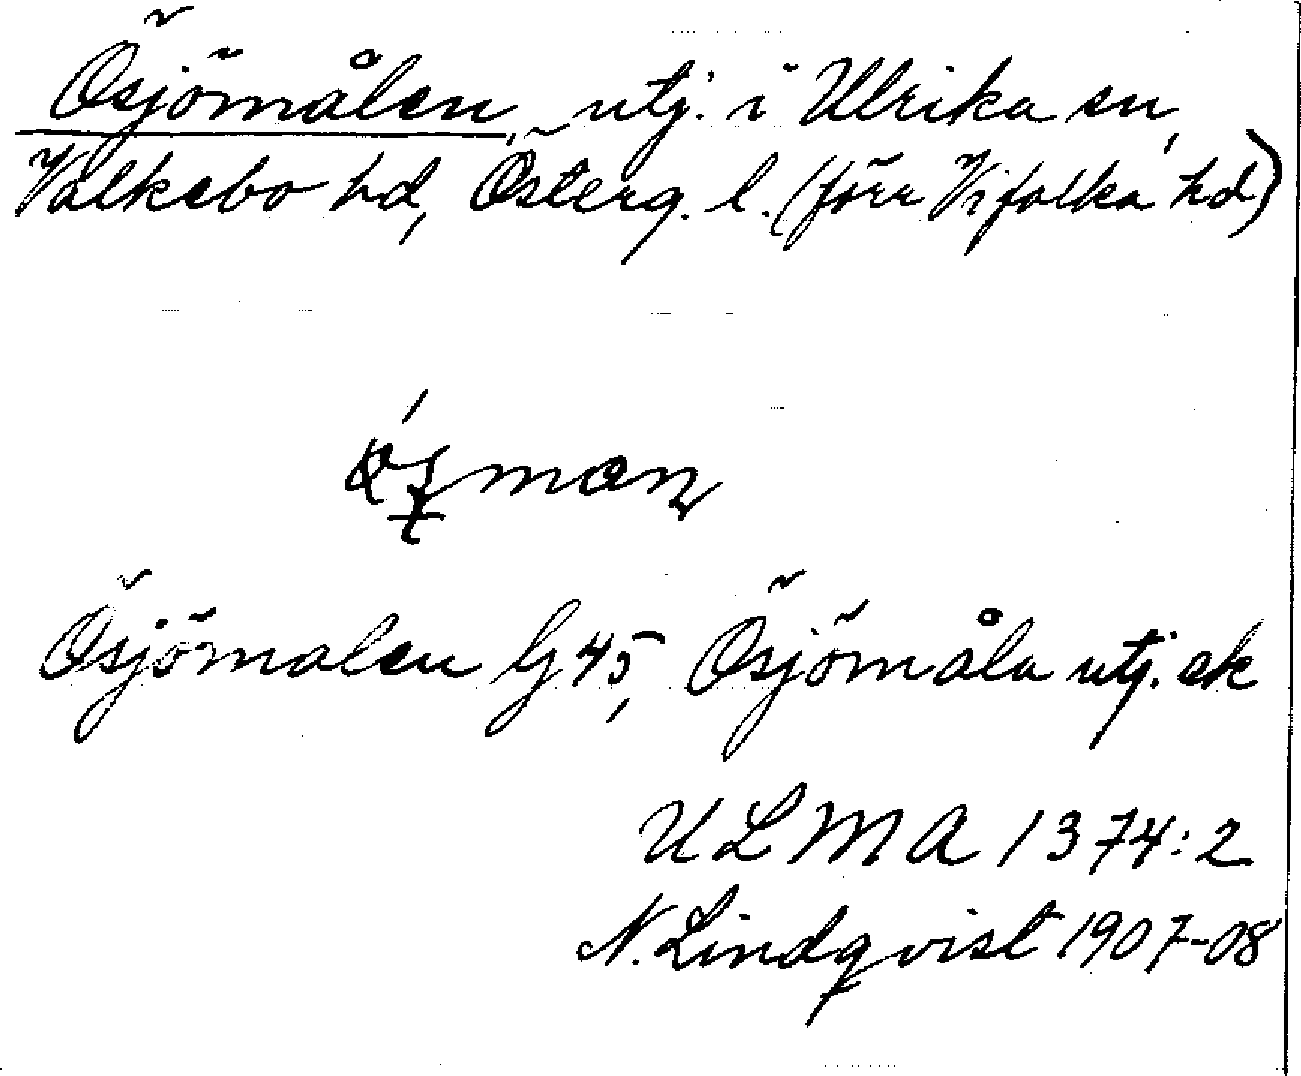 Ösjömålen, utj. i Ulrika sn,
Valkebo hd, Österg. l. (förr Vifolka hd)
Ösjömalen G 45, Ösjömåla utj. ek
ULMA 1374:2
N. Lindqvist 1907-08